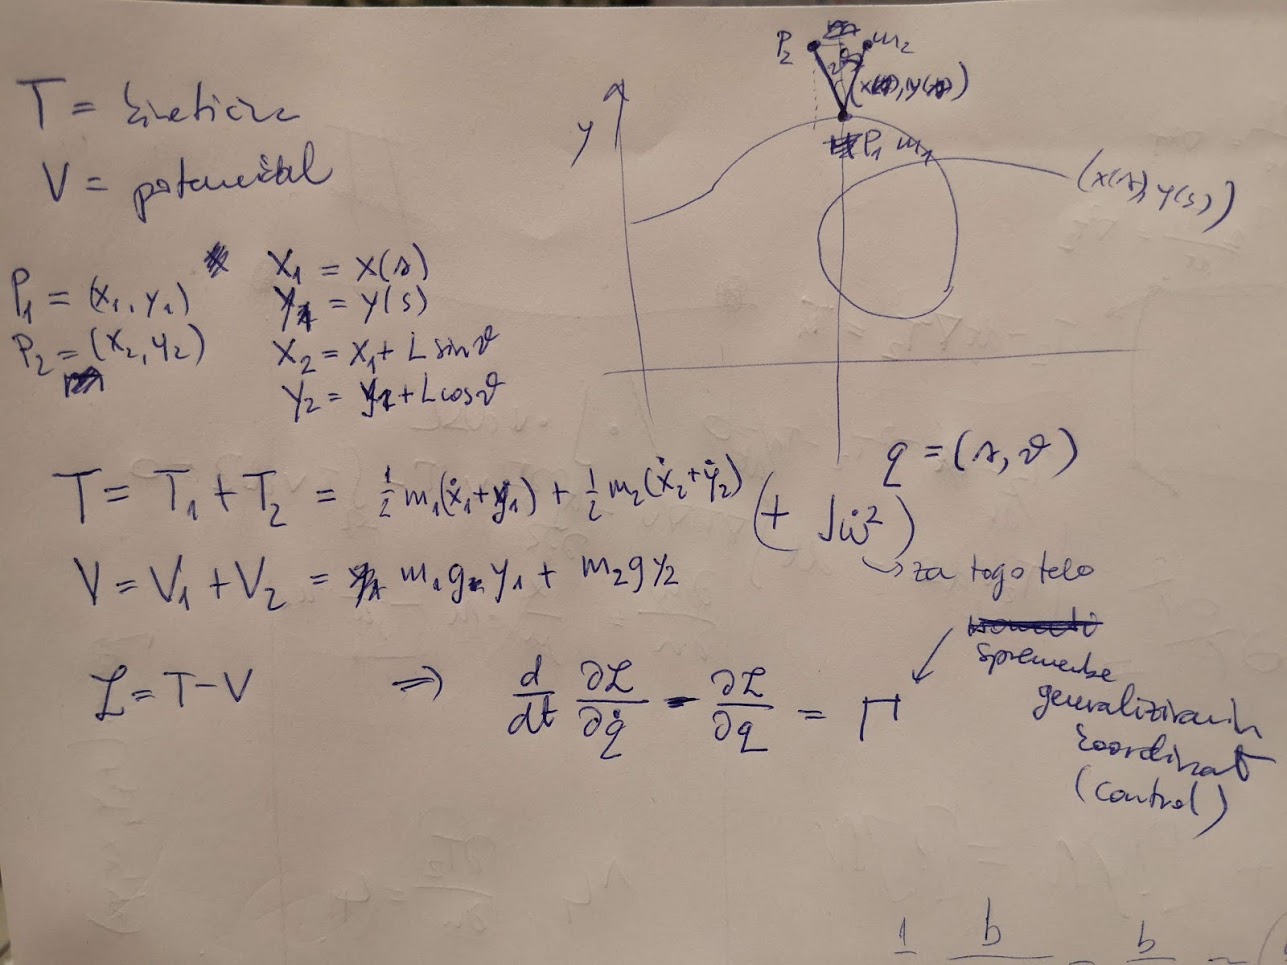 T = kinetična
V = potencial
P₂ m₂
y
P₁ m₁
(x(s), y(s))
P₁ = (x₁, y₁)
P₂ = (x₂, y₂)
x₁ = x(s)
y₁ = y(s)
x₂ = x₁ + L sin ϑ
y₂ = y₁ + L cos ϑ
q = (s, ϑ)
T = T₁ + T₂ = ½ m₁(ẋ₁ + ẏ₁) + ½ m₂(ẋ₂ + ẏ₂) (+ Jω̇²)
↳ za togo telo
V = V₁ + V₂ = m₁g y₁ + m₂g y₂
ℒ = T - V ⇒ d/dt ∂ℒ/∂q̇ - ∂ℒ/∂q = Γ
spremembe
generaliziranih
koordinat
(control)
1 b b